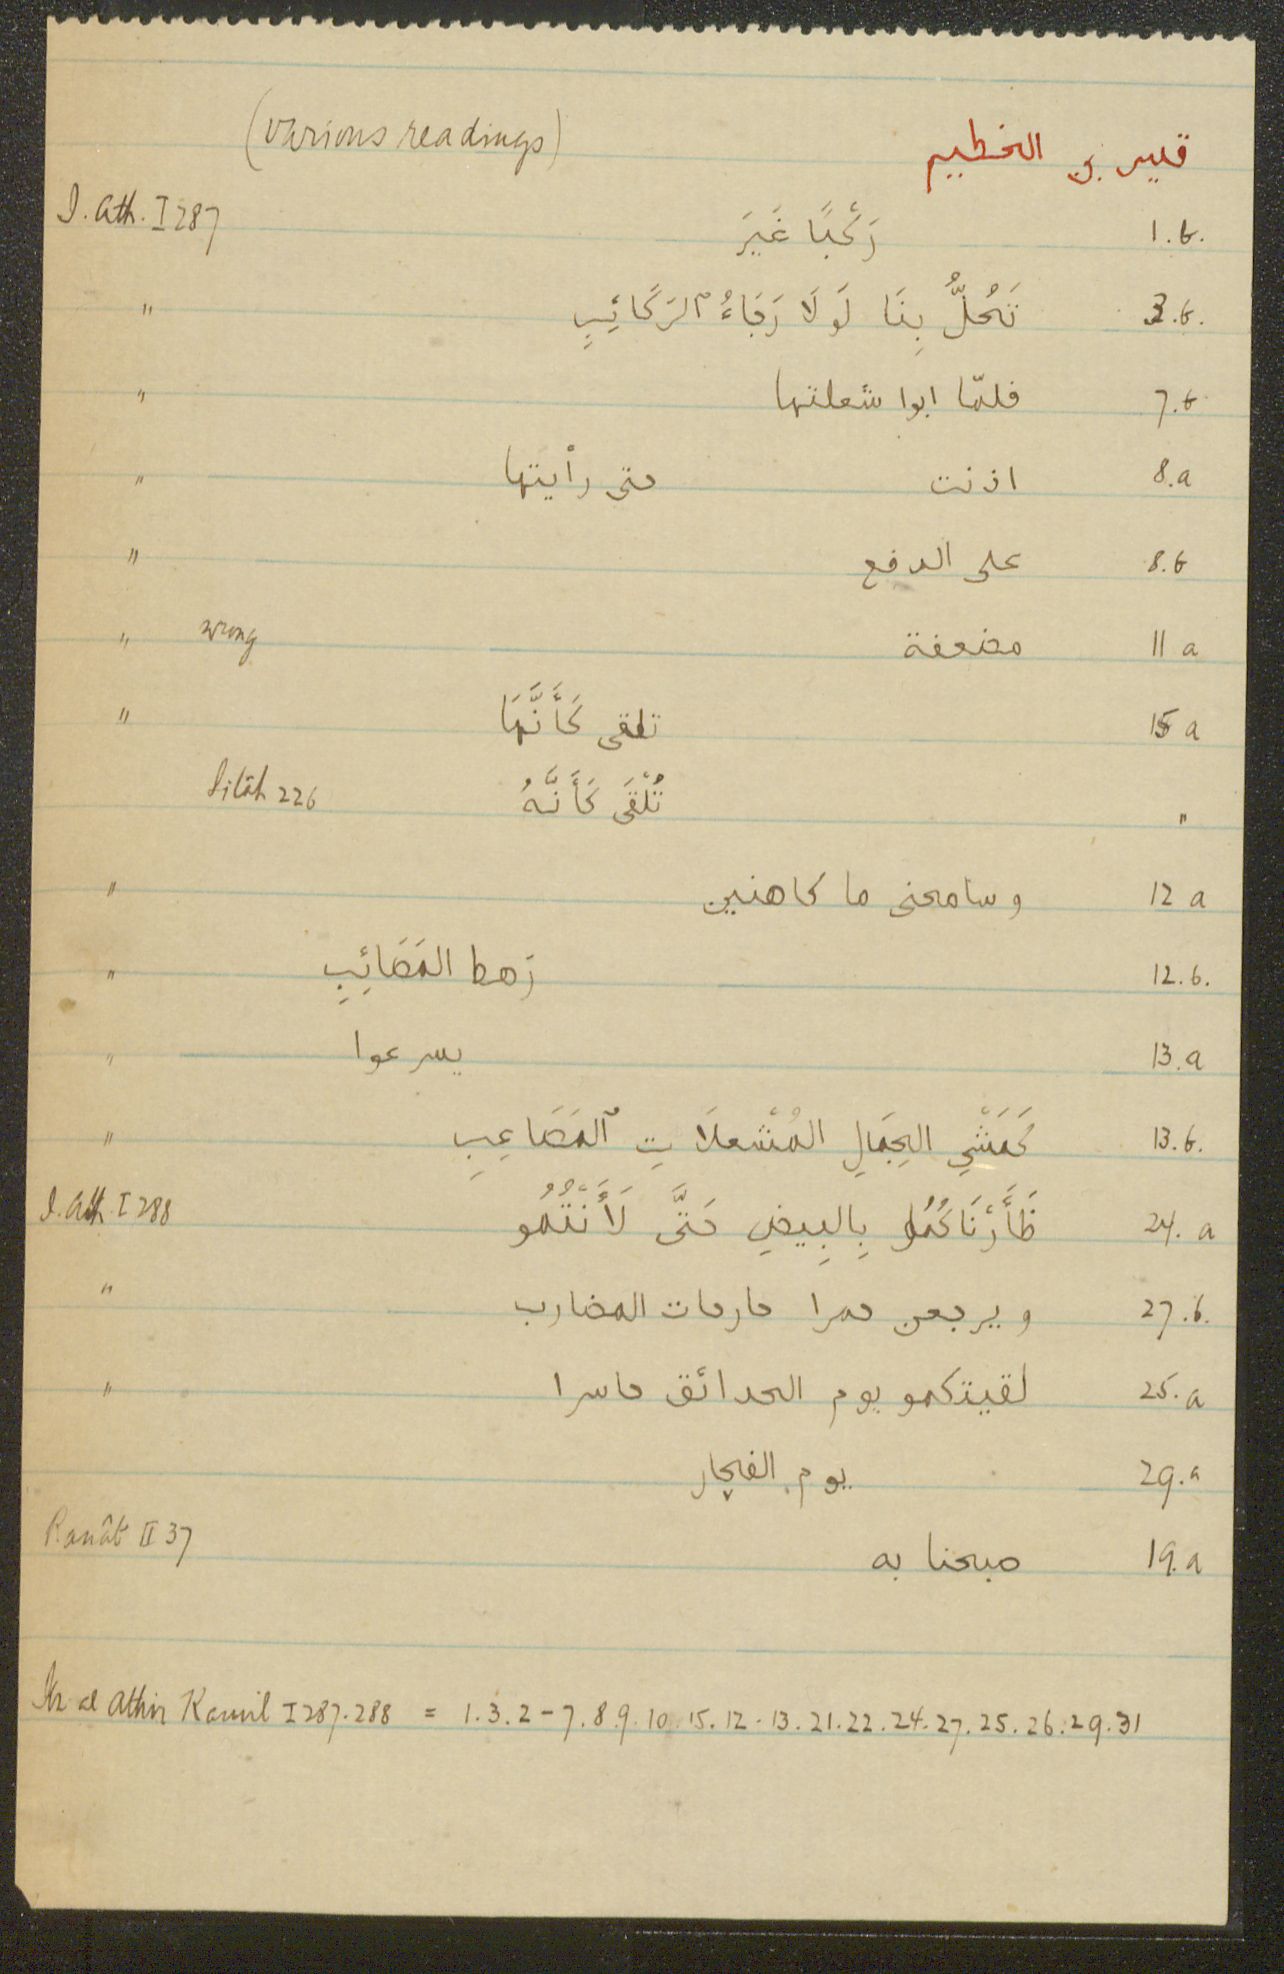 (various readings) قيس بن الخطيم
I. Ath. I 287 رَكْبًا غَيَرَ 1.b.
" تَحُلُّ بِنَا لَولَا رَجَاءُ ٱلرَكَائِبِ 3.b.
" فلمّا ابوا شعلتها 7.b
" اذنت حتى رأيتها 8.a
" على الدفع 8.b
" wrong مضعفة 11 a
" تلقى كَأَنَّهَا 15 a
226 تُلْقَى كَأَنَّهُ "
" وسامحنى ما كاهنين 12 a
" رهط القَصَائِبِ 12.b.
" يسرعوا 13.a
" كَمَشْيِ الجِمَالِ المُشْعلَاتِ ٱلمَصَاعِبِ 13.b.
I. Ath. I 288 ظَأَرْنَاكُمُ بِالبِيضِ حَتَّى لَأَنْتُمُو 24. a
" ويرجعن حمرا جارحات المضارب 27.b.
" لقيتكمو يوم الحدائق حاسرا 25.a
يوم الفجار 29.a
II 37 صبحنا به 19.a
Ibn al Athir Kamil I 287.288 = 1.3.2-7.8.9.10.15.12.13.21.22.24.27.25.26.29.31